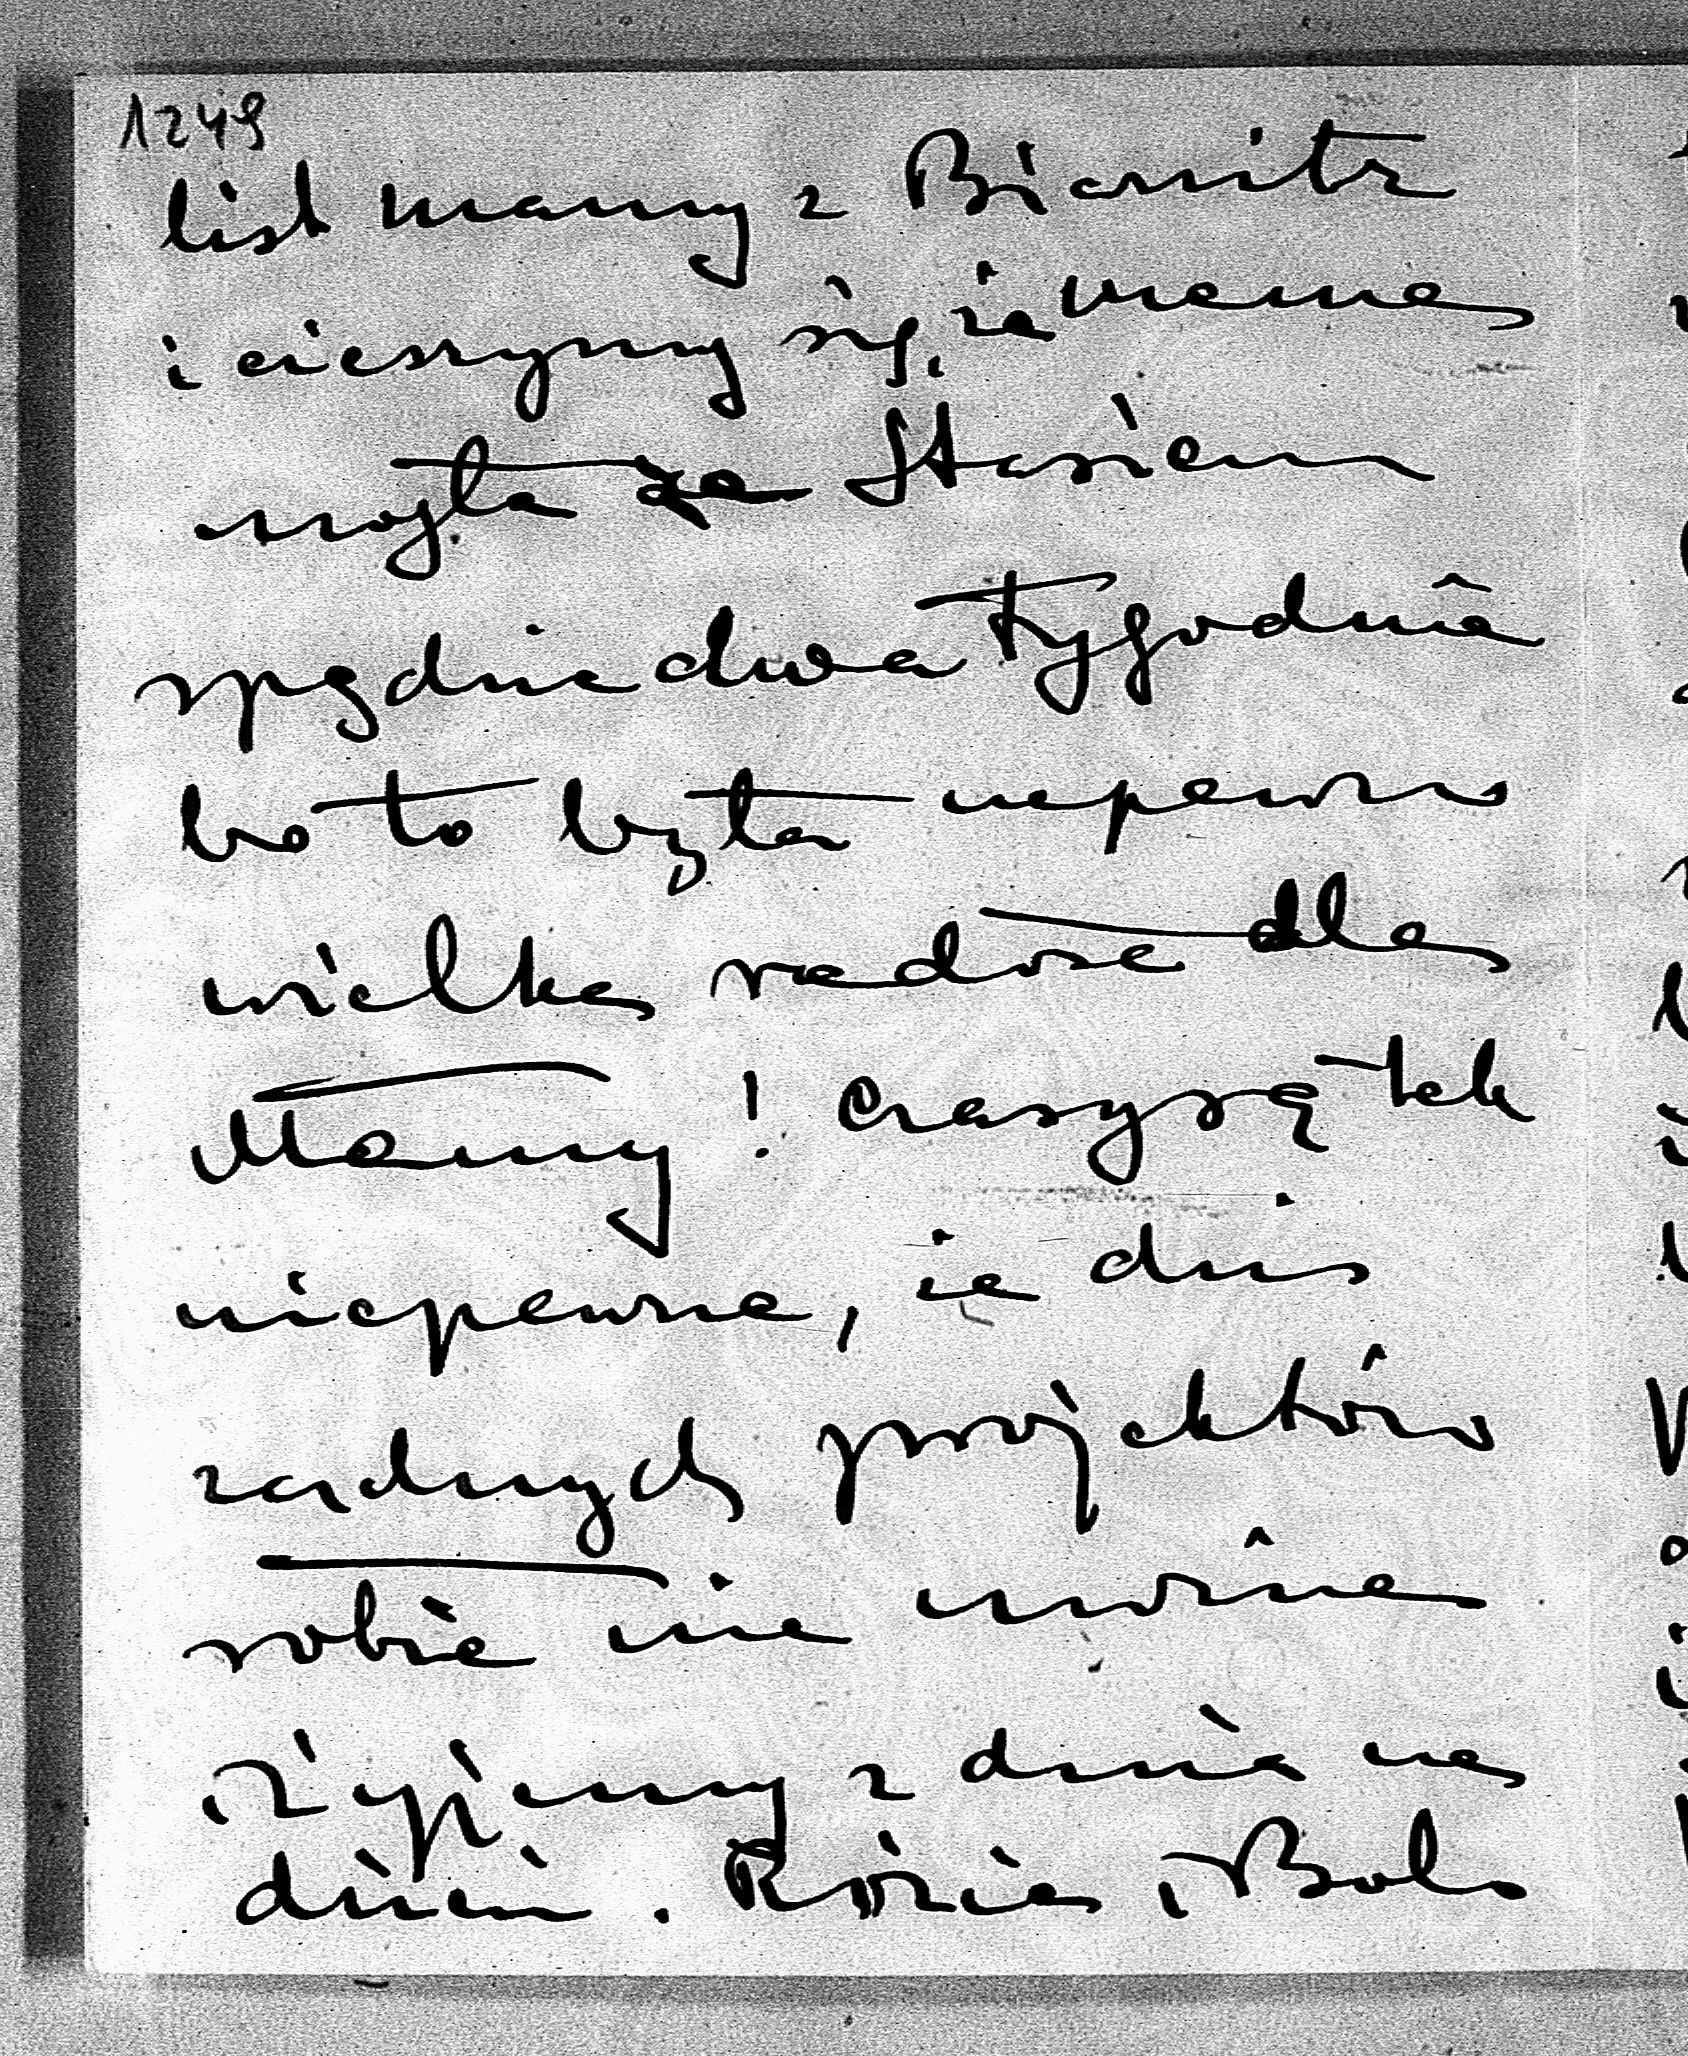 1249
list mamy z Biarritz
i cieszymy się, że mama
mogła ze Stasiem
spędzić dwa tygodnie
bo to była napewno
wielka radość dla
Mamy! Czasy są tak
niepewne, że dziś
żadnych projektów
robić nie można
Żyjemy z dnia na
dzień. Rózia i Bolo